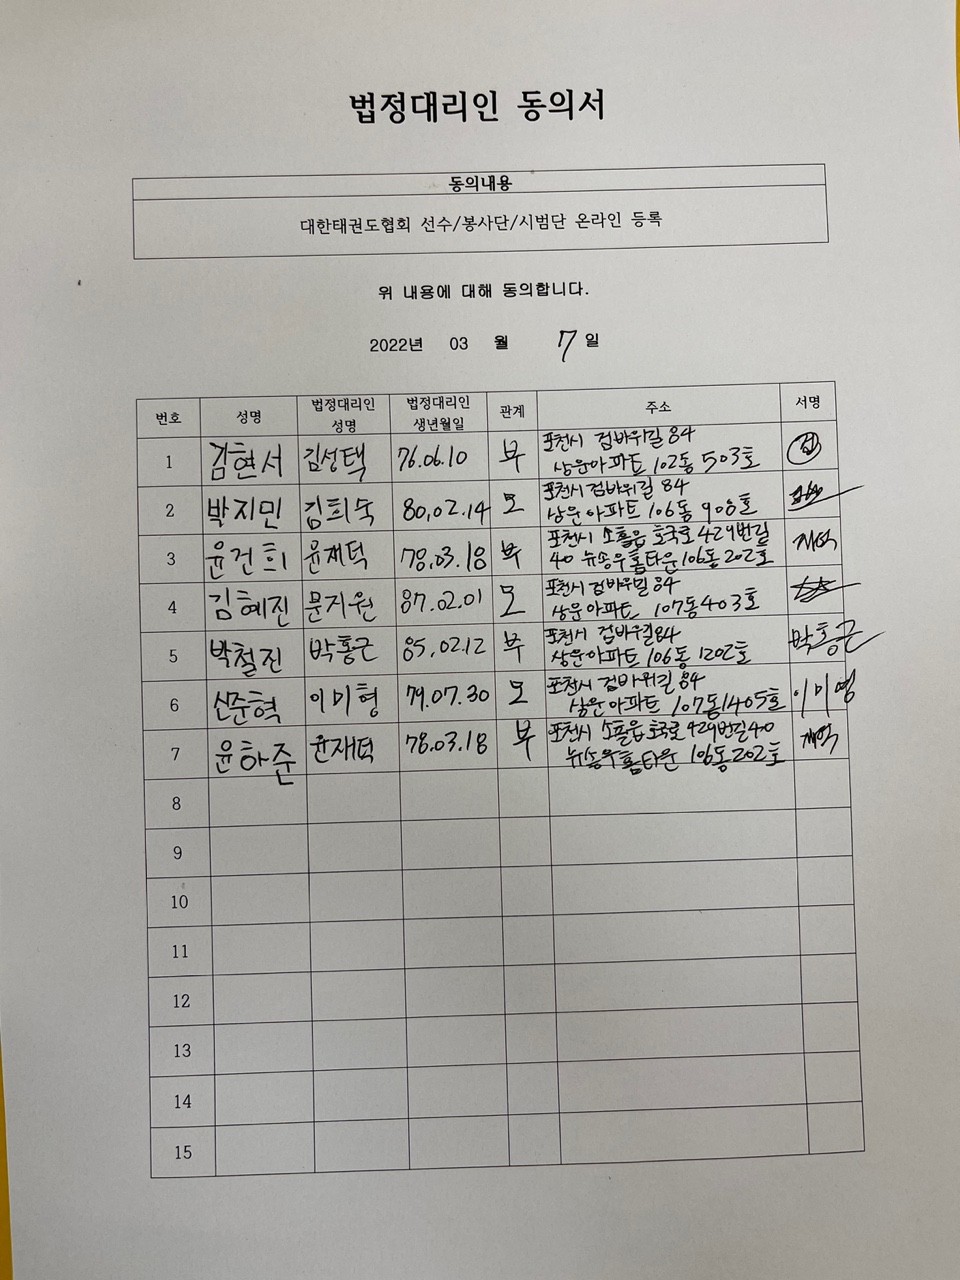 법정대리인 동의서
동의내용
대한태권도협회 선수/봉사단/시범단 온라인 등록
위 내용에 대해 동의합니다.
2022년 03 월 7 일
번호 성명 법정대리인 성명 법정대리인 생년월일 관계 주소 서명
1 김현서 김성택 76.06.10 부 포천시 검바위길 84
상운아파트 102동 503호
2 박지민 김희숙 80.02.14 모 포천시 검바위길 84
상운아파트 106동 908호
3 윤건희 윤재덕 78.03.18 부 포천시 소흘읍 호국로 429번길
40 뉴송우홈타운 106동 202호 재덕
4 김혜진 문지원 87.02.01 모 포천시 검바위길 84
상운아파트 107동 403호
5 박철진 박홍근 85.02.12 부 포천시 검바위길 84
상운아파트 106동 1202호 박홍근
6 신준혁 이미형 79.07.30 모 포천시 검바위길 84
상운아파트 107동 1405호 이미형
7 윤하준 윤재덕 78.03.18 부 포천시 소흘읍 호국로 429번길 40
뉴송우홈타운 106동 202호 재덕
8
9
10
11
12
13
14
15